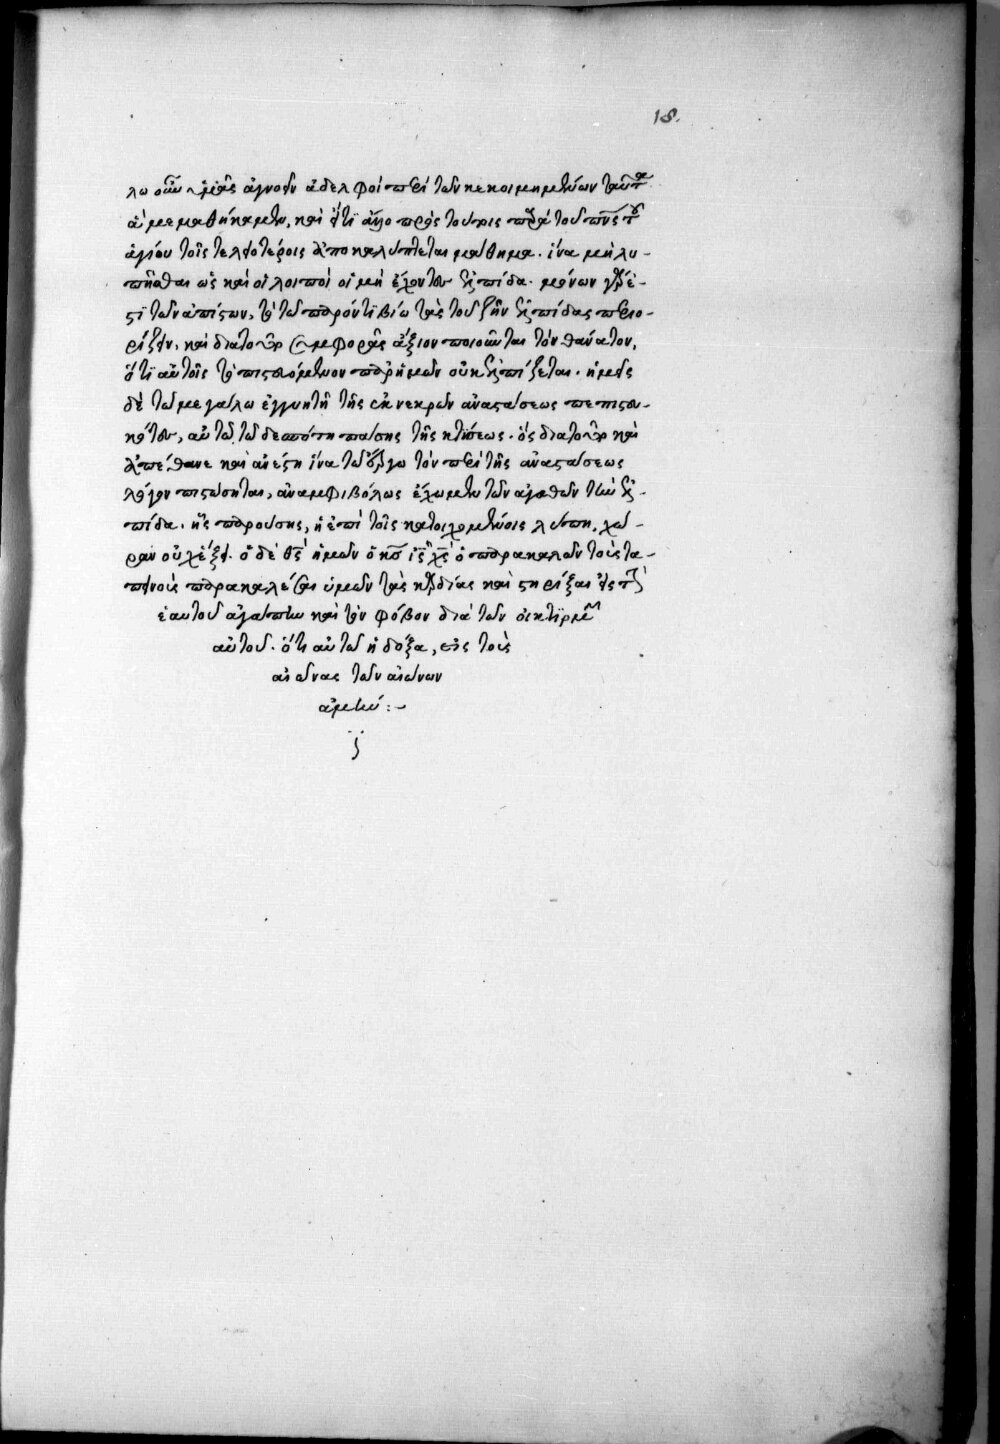 18.
λω οὖν ὑμᾶς ἀγνοεῖν ἀδελφοὶ περὶ τῶν κεκοιμημένων ταῦτα
ἃ μεμαθήκαμεν, καὶ εἴ τι ἄλλο πρὸς τούτοις παρὰ τοῦ πνς τοῦ
ἁγίου τοῖς τελειοτέροις ἀποκαλύπτεται μάθημα. ἵνα μὴ λυ-
πῆσθαι ὡς καὶ οἱ λοιποὶ οἱ μὴ ἔχοντες ἐλπίδα. μόνων γάρ ἐ-
στι τῶν ἀπίστων, ἐν τῷ παρόντι βίῳ τὰς τοῦ ζῆν ἐλπίδας περιο-
ρίζειν, καὶ διατοῦτο συμφορᾶς ἄξιον ποιοῦνται τὸν θάνατον,
ὅτι αὐτοῖς τὸ πιστευόμενον παρ' ἡμῶν οὐκ ἐλπίζεται. ἡμεῖς
δὲ τῷ μεγάλω ἐγγυητῇ τῆς ἐκ νεκρῶν ἀναστάσεως πεπιστευ-
κότες, αὐτῷ τῷ δεσπότη πάσης τῆς κτίσεως. ὃς διατοῦτο καὶ
ἀπέθανε καὶ ἀνέστη ἵνα τῷ ἔργω τὸν περὶ τῆς ἀναστάσεως
λόγον πιστώσηται, ἀναμφιβόλως ἔχωμεν τῶν ἀγαθῶν τὴν ἐλ-
πίδα. ἧς παρούσης, ἡ ἐπὶ τοῖς κατοιχομένοις λύπη, χώ-
ραν οὐχ ἕξει. ὁ δὲ θς ἡμῶν ὁ κς ις χς ὁ παρακαλῶν τοὺς τα-
πεινοὺς παρακαλέσαι ὑμῶν τὰς καρδίας καὶ στηρίξαι εἰς τὴν
ἑαυτοῦ ἀγάπην καὶ τὸν φόβον διὰ τῶν οἰκτιρμῶν
αὐτοῦ. ὅτι αὐτῷ ἡ δόξα, εἰς τοὺς
αἰῶνας τῶν αἰώνων
ἀμήν :-